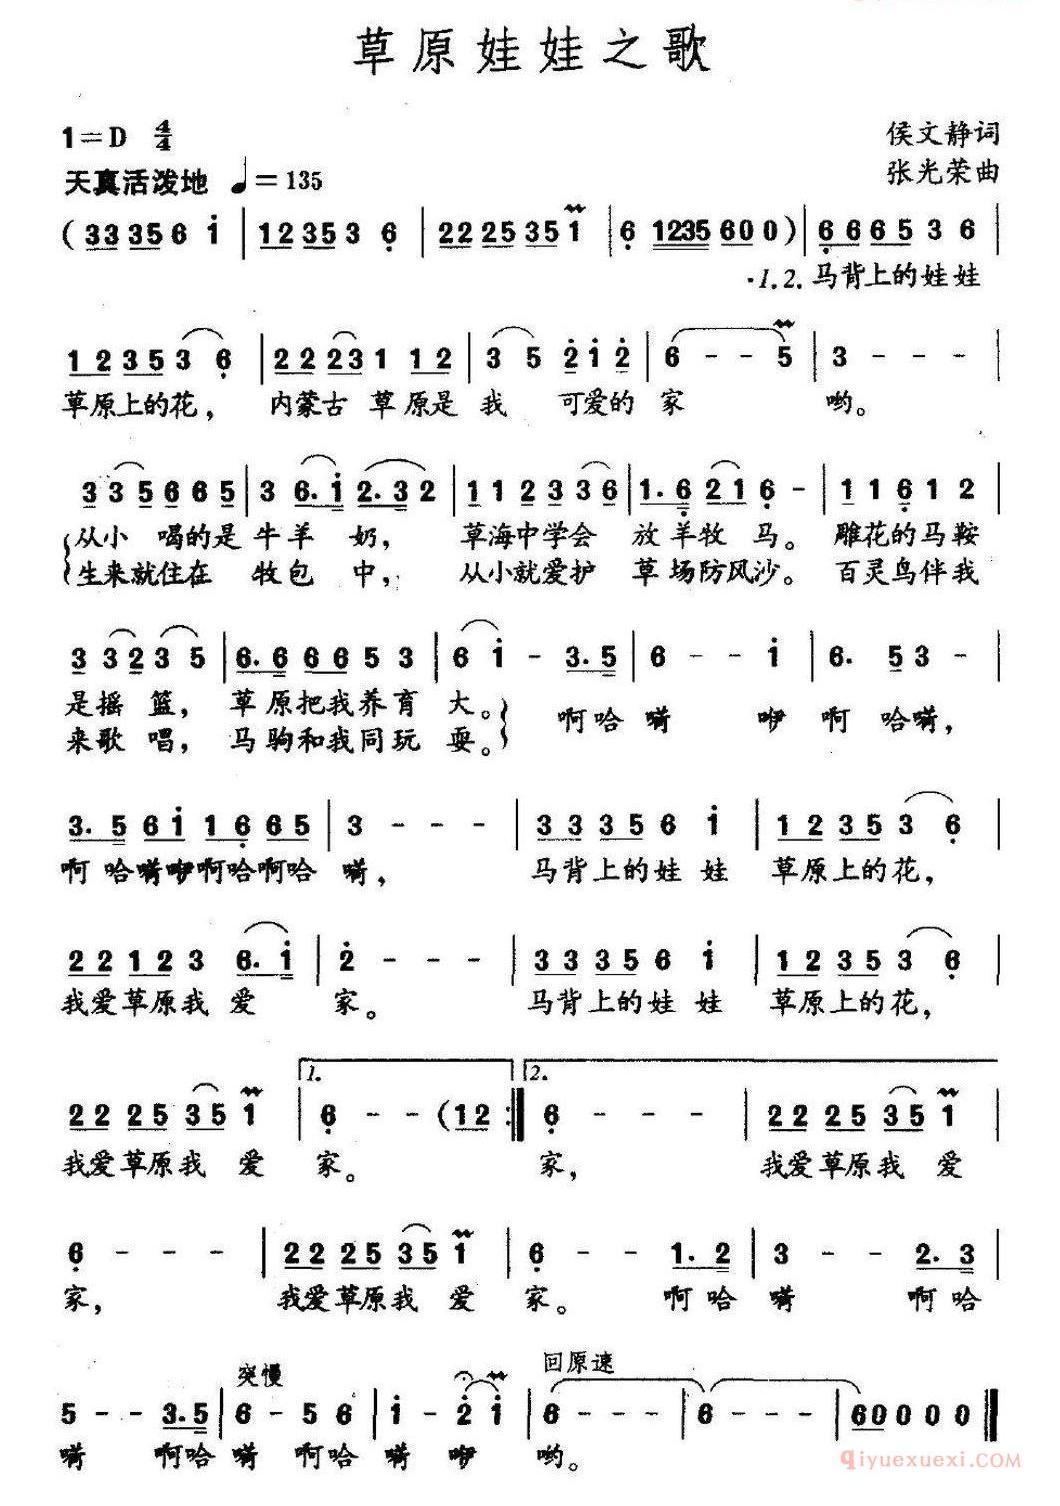 草原娃娃之歌
1=D 4/4
侯文静词
天真活泼地 ♩=135
张光荣曲
(33356 i | 12353 6 | 2225351 | 6 1235600) | 666536 |
·1.2.马背上的娃娃
123536 | 2223112 | 35 2i2 | 6--5 | 3--- |
草原上的花， 内蒙古草原是我 可爱的家 哟。
335665 | 36.i2.32 | 112336 | 1.6216- | 11612 |
从小喝的是牛羊奶， 草海中学会放羊牧马。 雕花的马鞍
生来就住在牧包中， 从小就爱护草场防风沙。 百灵鸟伴我
33235 | 6.66653 | 6i-3.5 | 6--i | 6.53- |
是摇篮， 草原把我养育大。 啊哈嗬 咿 啊哈嗬，
来歌唱， 马驹和我同玩耍。
3.56i1665 | 3--- | 33356i | 123536 |
啊哈嗬咿啊哈啊哈嗬， 马背上的娃娃草原上的花，
221236.i | 2--- | 33356i | 123536 |
我爱草原我爱家。 马背上的娃娃草原上的花，
1. 2.
2225351 | 6--(12 :| 6--- | 2225351 |
我爱草原我爱家。 家， 我爱草原我爱
6--- | 2225351 | 6--1.2 | 3--2.3 |
家， 我爱草原我爱家。 啊哈嗬 啊哈
突慢 回原速
5--3.5 | 6-56 | i-2i | 6--- | 6--- | 60000 ||
嗬 啊哈嗬 啊哈嗬咿哟。
qiyuexuexi.COM